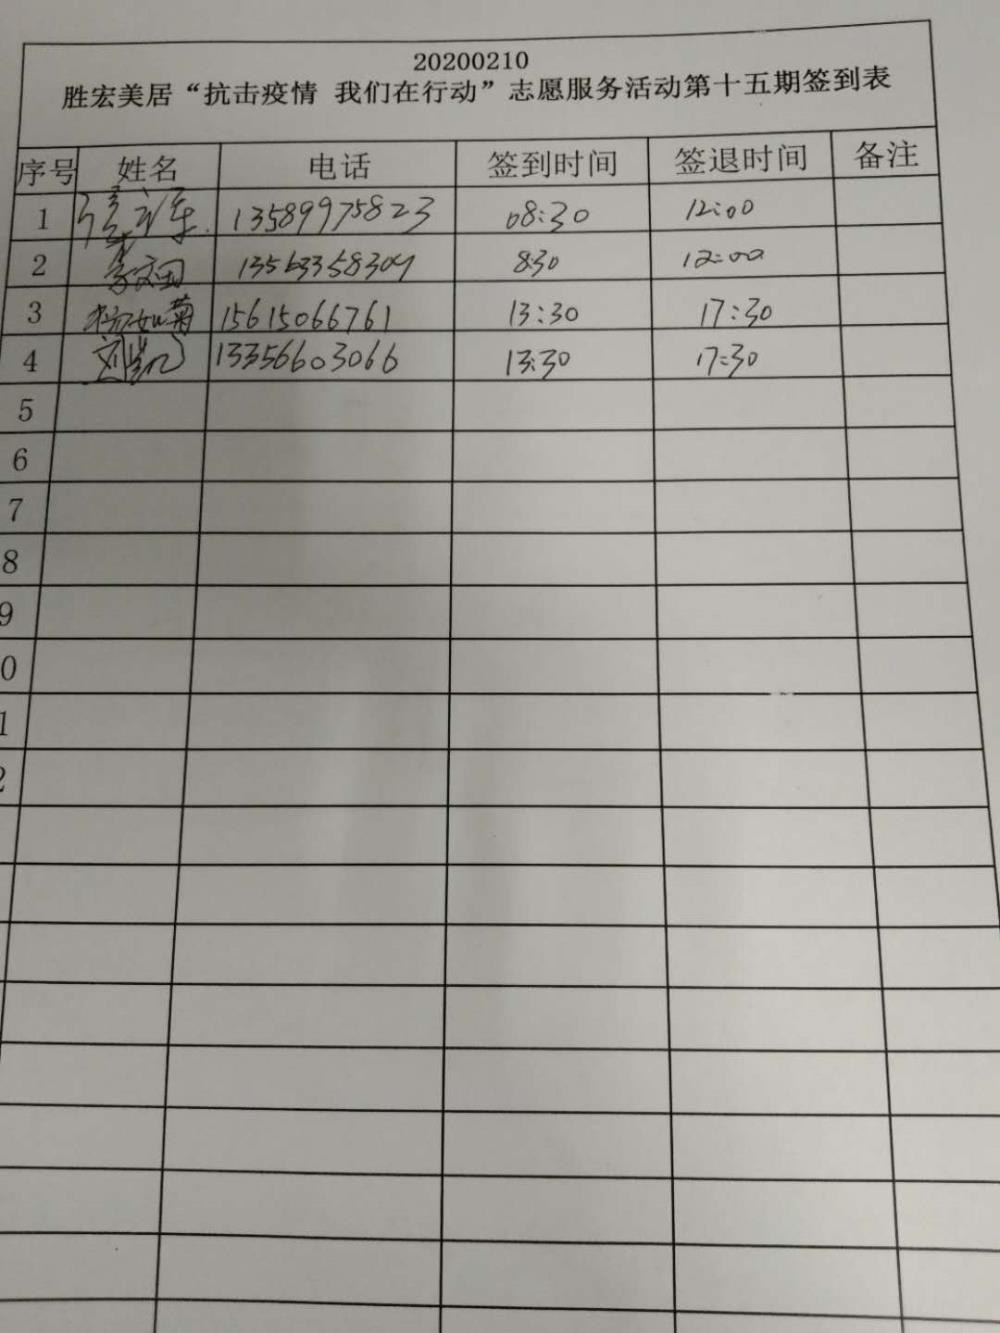 20200210
胜宏美居“抗击疫情 我们在行动”志愿服务活动第十五期签到表
序号 姓名 电话 签到时间 签退时间 备注
1 13589975823 08:30 12:00
2 8:30 12:00
3 杨如菊 15615066761 13:30 17:30
4 刘凯 13356603066 13:30 17:30
5
6
7
8
9
0
1
2